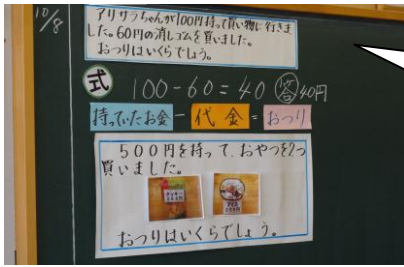 10/8
アリサちゃんが100円持って買い物に行きま
した。60円の消しゴムを買いました。
おつりはいくらでしょう。
式 100-60=40 答40円
持っていたお金-代金=おつり
500円を持って、おやつを2つ
買いました。
クッキー
アイス
おつりはいくらでしょう。